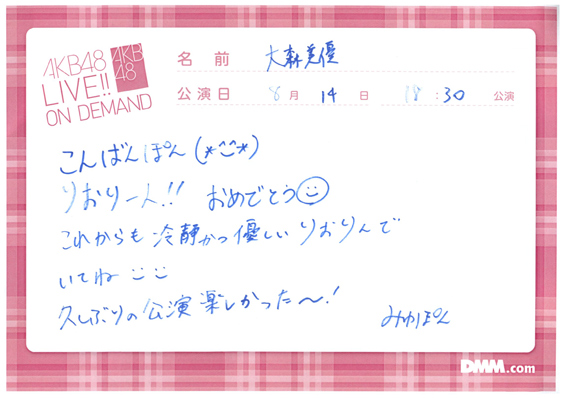 AKB48
LIVE!!
ON DEMAND
AKB
48
名前 大森美優
公演日 8月14日 18:30公演
こんばんぽん(*^^*)
りおりーん!! おめでとう
これからも冷静かつ優しいりおりんで
いてね
久しぶりの公演楽しかった〜!
みゆぽん
DMM.com